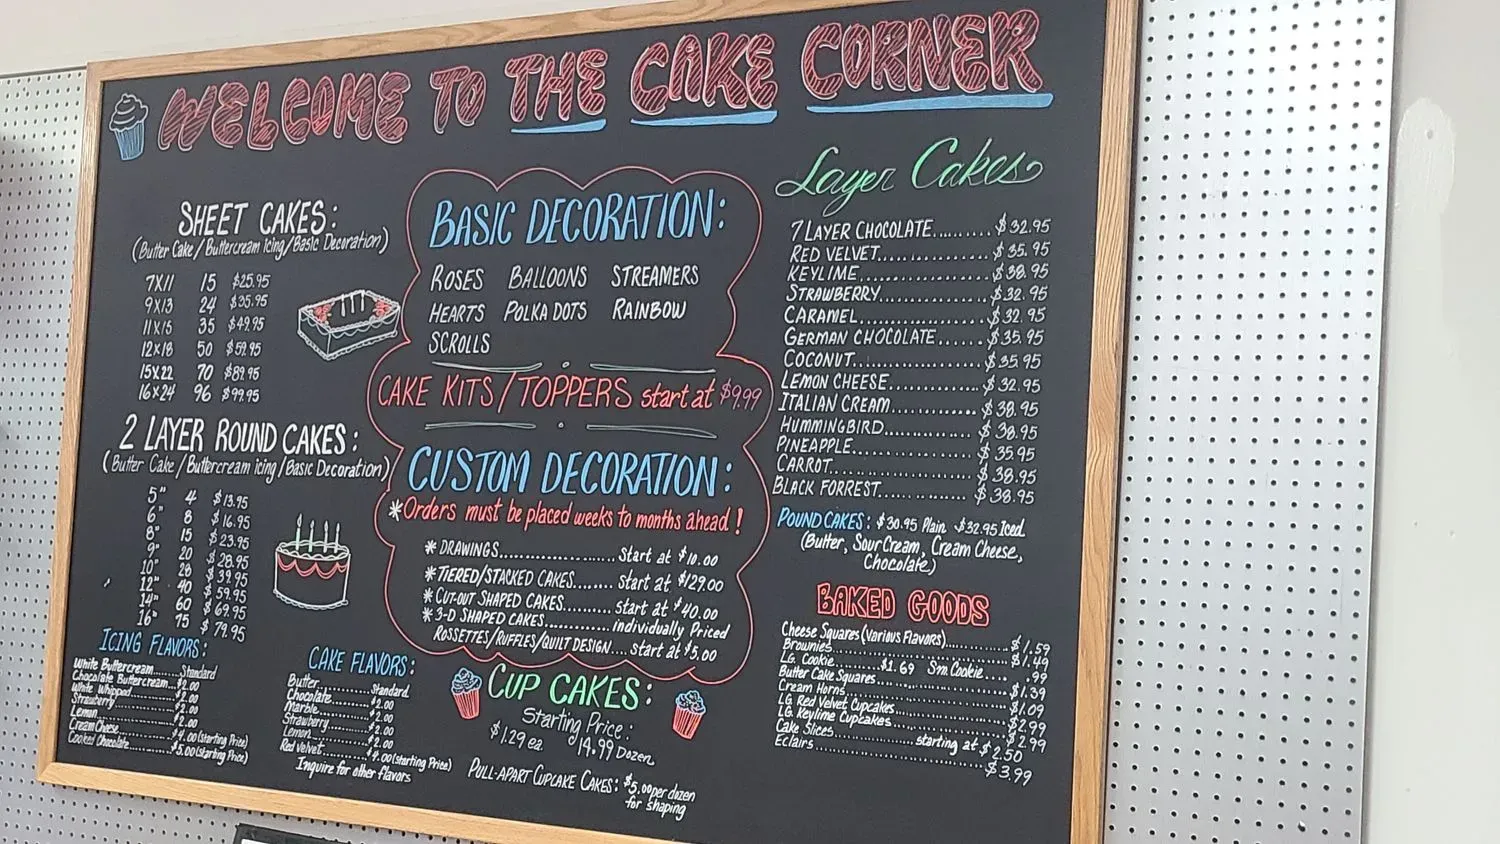 WELCOME TO THE CAKE CORNER
SHEET CAKES:
(Butter Cake/Buttercream Icing/Basic Decoration)
7X11 15 $25.95
9X13 24 $35.95
11X15 35 $49.95
12X18 50 $59.95
15X22 70 $89.95
16X24 96 $99.95
2 LAYER ROUND CAKES:
(Butter Cake/Buttercream Icing/Basic Decoration)
5" 4 $13.95
6" 8 $16.95
8" 15 $23.95
9" 20 $28.95
10" 28 $39.95
12" 40 $59.95
14" 60 $69.95
16" 75 $79.95
ICING FLAVORS:
White Buttercream......Standard
Chocolate Buttercream....$2.00
White Whipped........$2.00
Strawberry........$2.00
Lemon........$2.00
Cream Cheese........$4.00 (starting Price)
Cooked Chocolate........$5.00 (starting Price)
CAKE FLAVORS:
Butter........Standard
Chocolate........$2.00
Marble........$2.00
Strawberry........$2.00
Lemon........$2.00
Red Velvet........4.00 (starting Price)
Inquire for other flavors
BASIC DECORATION:
ROSES BALLOONS STREAMERS
HEARTS POLKA DOTS RAINBOW
SCROLLS
CAKE KITS/TOPPERS start at $9.99
CUSTOM DECORATION:
*Orders must be placed weeks to months ahead!
*DRAWINGS........Start at $10.00
*TIERED/STACKED CAKES........Start at $129.00
*CUT-OUT SHAPED CAKES........start at $40.00
*3-D SHAPED CAKES........individually Priced
ROSSETTES/RUFFLES/QUILT DESIGN....Start at $5.00
CUP CAKES:
Starting Price:
$1.29 ea. 14.99 Dozen
PULL-APART CUPCAKE CAKES: $5.00 per dozen
for shaping
Layer Cakes
7 LAYER CHOCOLATE........$32.95
RED VELVET........$35.95
KEYLIME........$38.95
STRAWBERRY........$32.95
CARAMEL........$32.95
GERMAN CHOCOLATE........$35.95
COCONUT........$35.95
LEMON CHEESE........$32.95
ITALIAN CREAM........$38.95
HUMMINGBIRD........$38.95
PINEAPPLE........$35.95
CARROT........$38.95
BLACK FORREST........$38.95
POUND CAKES: $30.95 Plain $32.95 Iced
(Butter, Sour Cream, Cream Cheese,
Chocolate)
BAKED GOODS
Cheese Squares (Various Flavors)........$1.59
Brownies........$1.49
LG. Cookie....$1.69 Sm. Cookie.... .99
Butter Cake Squares........$1.39
Cream Horns........$1.09
LG. Red Velvet Cupcakes........$2.99
LG. Keylime Cupcakes........$2.99
Cake Slices........starting at $2.50
Eclairs........$3.99